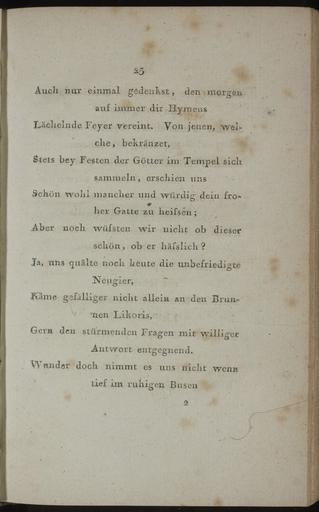 25
Auch nur einmal gedenkst, den morgen
auf immer dir Hymens
Lächelnde Feyer vereint. Von jenen, wel-
che, bekränzet,
Stets bey Festen der Götter im Tempel sich
sammeln, erschien uns
Schön wohl mancher und würdig dein fro-
her Gatte zu heifsen;
Aber noch wüfsten wir nicht ob dieser
schön, ob er häfslich?
Ja, uns quälte noch heute die unbefriedigte
Neugier,
Käme gefälliger nicht allein an den Brun-
nen Likoris,
Gern den stürmenden Fragen mit williger
Antwort entgegnend.
Wunder doch nimmt es uns nicht wenn
tief im ruhigen Busen
2